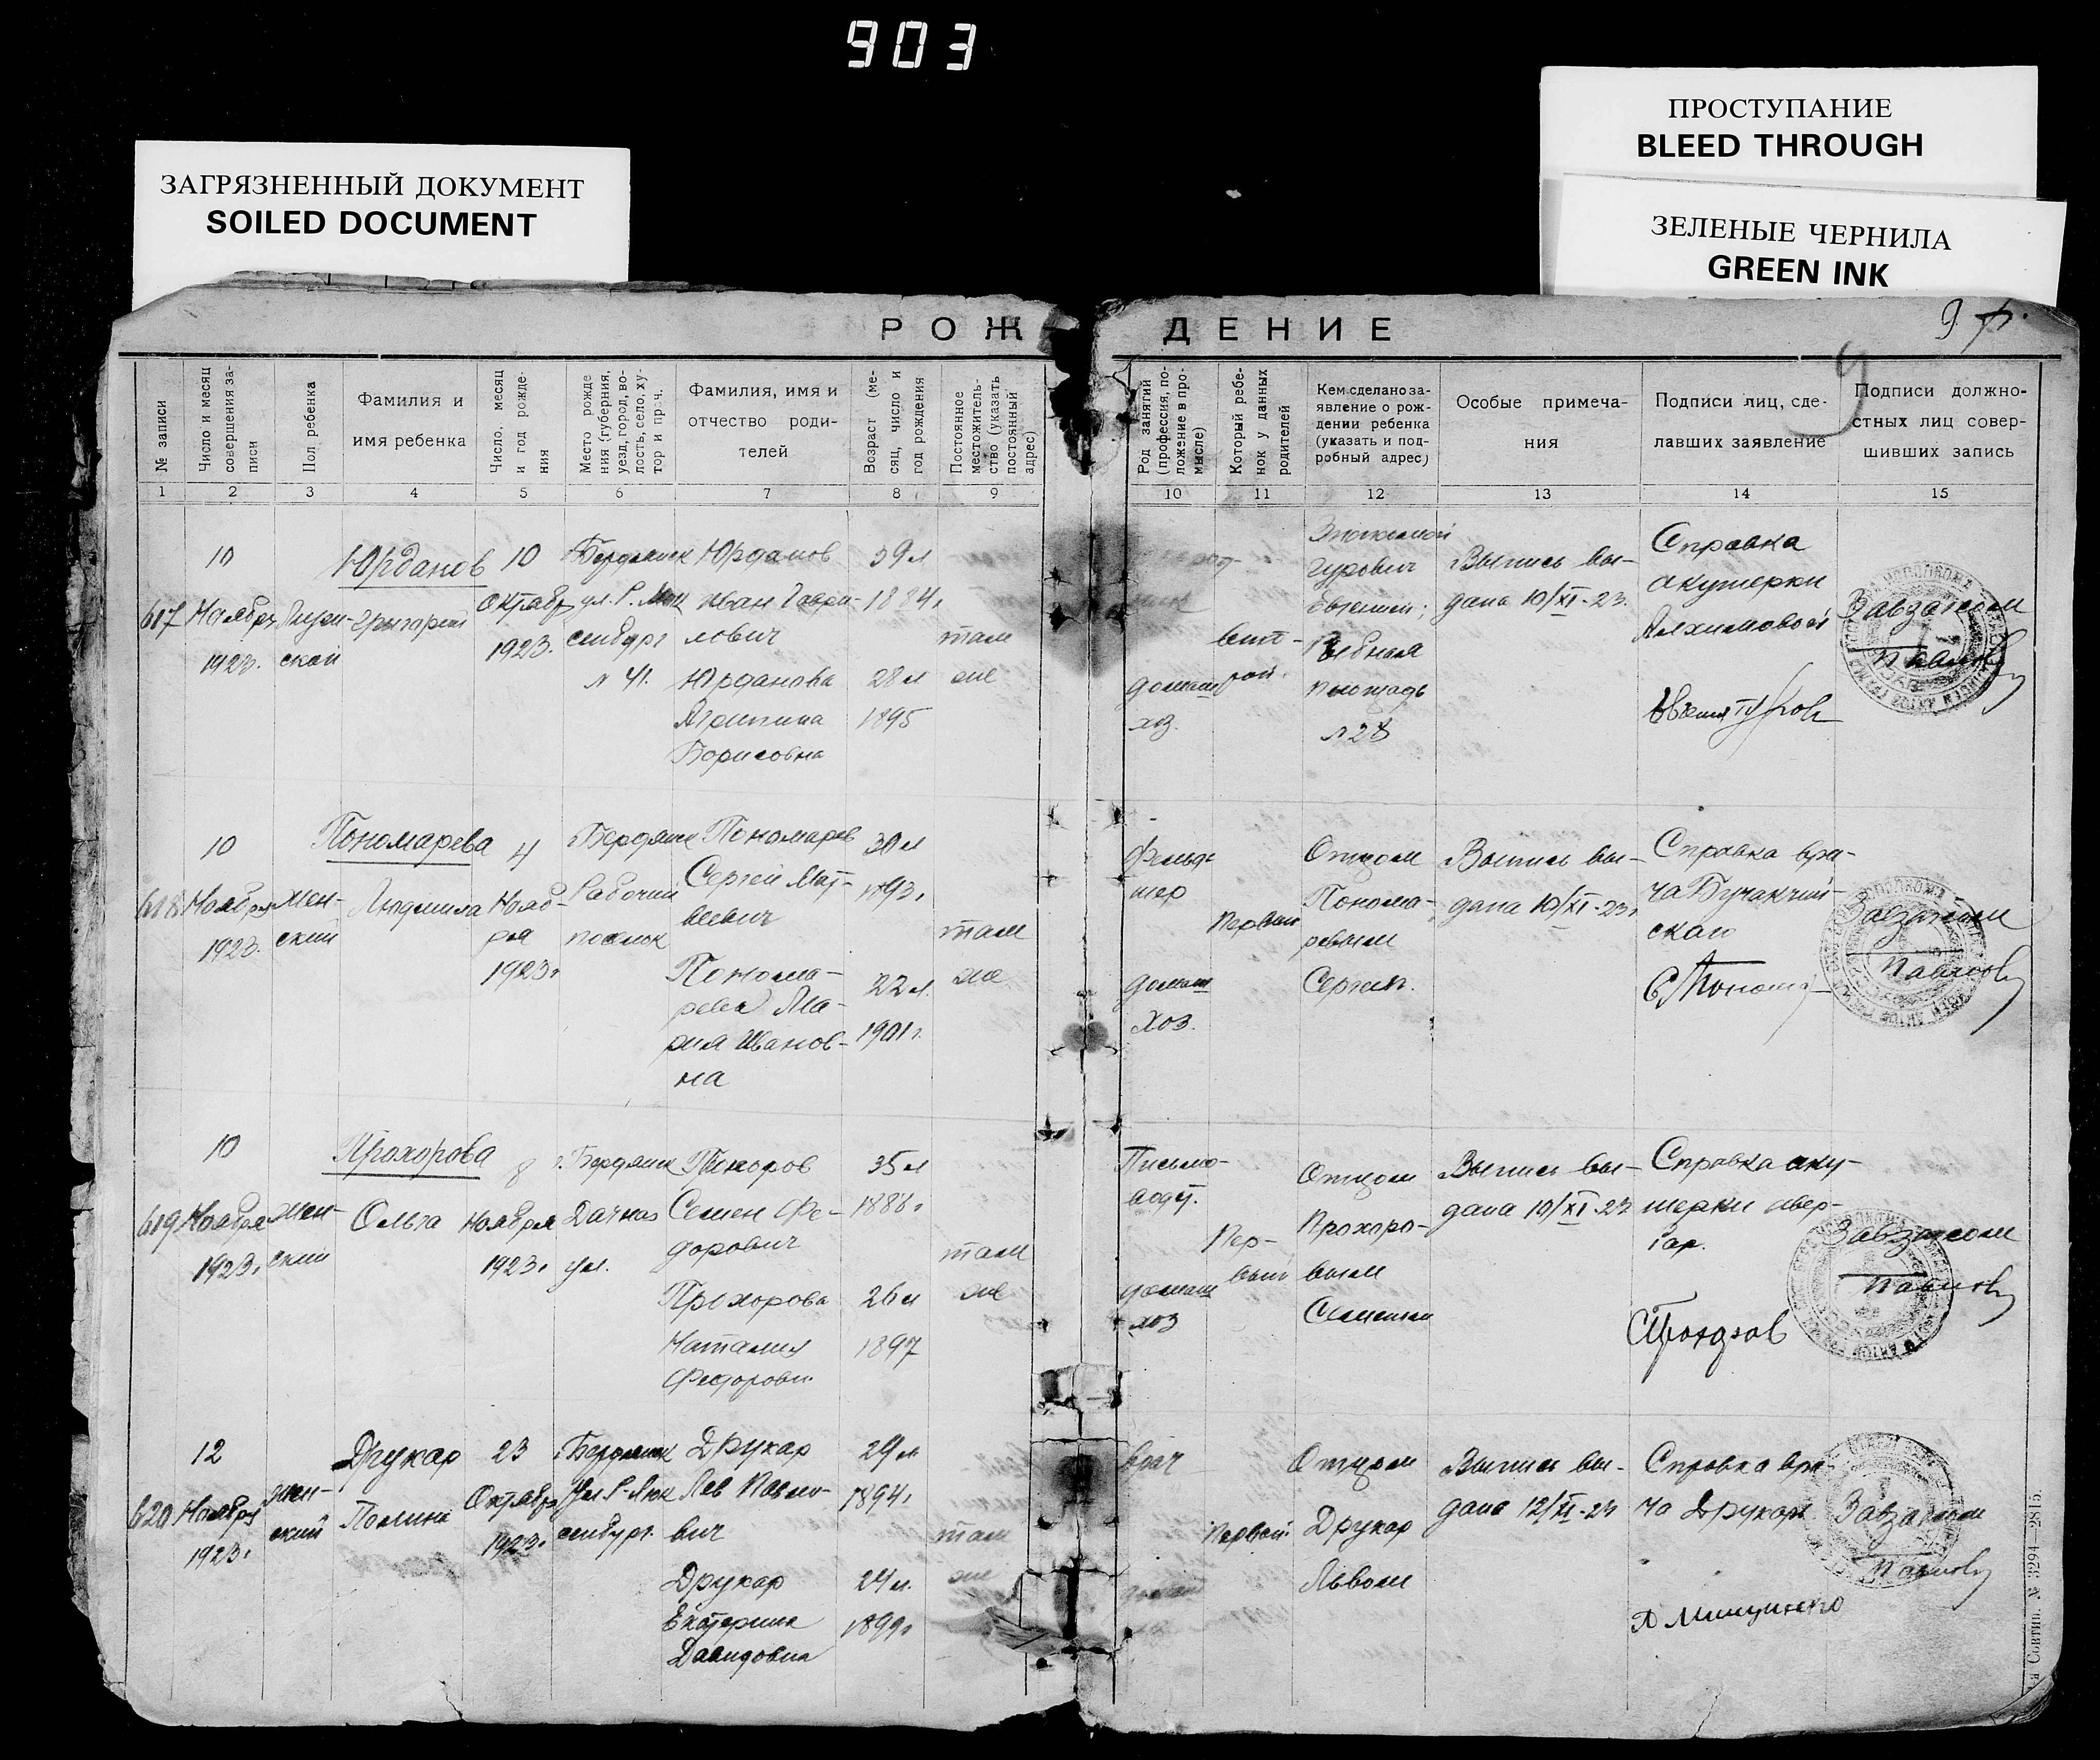 903
ПРОСТУПАНИЕ
BLEED THROUGH
ЗАГРЯЗНЕННЫЙ ДОКУМЕНТ
SOILED DOCUMENT
ЗЕЛЕНЫЕ ЧЕРНИЛА
GREEN INK
РОЖДЕНИЕ
9
№ записи
Число и месяц совершения записи
Пол ребенка
Фамилия и
имя ребенка
Число, месяц и год рождения
Место рождения (губерния, уезд, город, волость, село, хутор и пр-ч.
Фамилия, имя и
отчество роди-
телей
Возраст (месяц, число и год рождения
Постоянное местожительство (указать постоянный адрес)
Род занятий (профессия, положение в промысле)
Который ребенок у данных родителей
Кем сделано за-
явление о рож-
дении ребенка
(указать и под-
робный адрес)
Особые примеча-
ния
Подписи лиц, сде-
лавших заявление
Подписи должно-
стных лиц совер-
шивших запись
1 2 3 4 5 6 7 8 9 10 11 12 13 14 15
617
10
Ноября
1923.
ской
Юрданов
Григорий
10
Октября
1923.
Бердянск
ул. Р. Люк
сенбург
№ 41.
Юрданов
Иван Гаври-
лович
Юрданова
Агрипина
Борисовна
39 л
1884 г
28 л
1895
там
же
домаш
хоз.
вто-
рой.
Гурович
Евгенией;
площадь
№ 28
Выпись вы-
дана 10/XI-23.
Справка
акушерки
Алхимовой
Завзагсом
Павлов
618
10
Ноября
1923.
Жен-
ский
Пономарева
Людмила
4
Нояб-
ря
1923 г
Бердянск
Рабочий
поселок
Пономарев
Сергей Мат-
веевич
Понома-
рева Ма-
рия Иванов-
на
30 л
1893 г
22 л.
1901 г.
там
же
Фельд-
шер
домаш
Хоз.
первый
Отцом
Понома-
ревым
Сергеем.
Выпись вы-
дана 10/XI-23 г
Справка вра-
ча
ского
Завзагсом
Павлов
619
10
Ноября
1923 г
Жен-
ский
Прохорова
Ольга
8
Ноября
1923 г
г. Бердянск
Дачная
ул.
Прохоров
Семен Фе-
дорович
Прохорова
Наталия
Федоровн.
35 л
1888 г
26 л
1897
там
же
Письмо-
вод.
домаш
хоз
Пер-
вый
Отцом
Прохоро-
вым
Семеном
Выпись вы-
дана 10/XI-23
Справка аку-
шерки
Завзагсом
Павлов
620
12
Ноября
1923 г
жен-
ский
Друкар
Полина
23
Октября
1923 г
Бердянск
Ул Р-Люк
сенбург.
Друкар
Лев Павло-
вич
Друкар
Екатерина
Давидовна
29 л
1894 г
24 л.
1899 г
там
же
врач
первый
Отцом
Друкар
Львом
Выпись вы-
дана 12/XI-23
Справка вра-
ча Друкар.
Завзагсом
Павлов
№ 3294—2815.